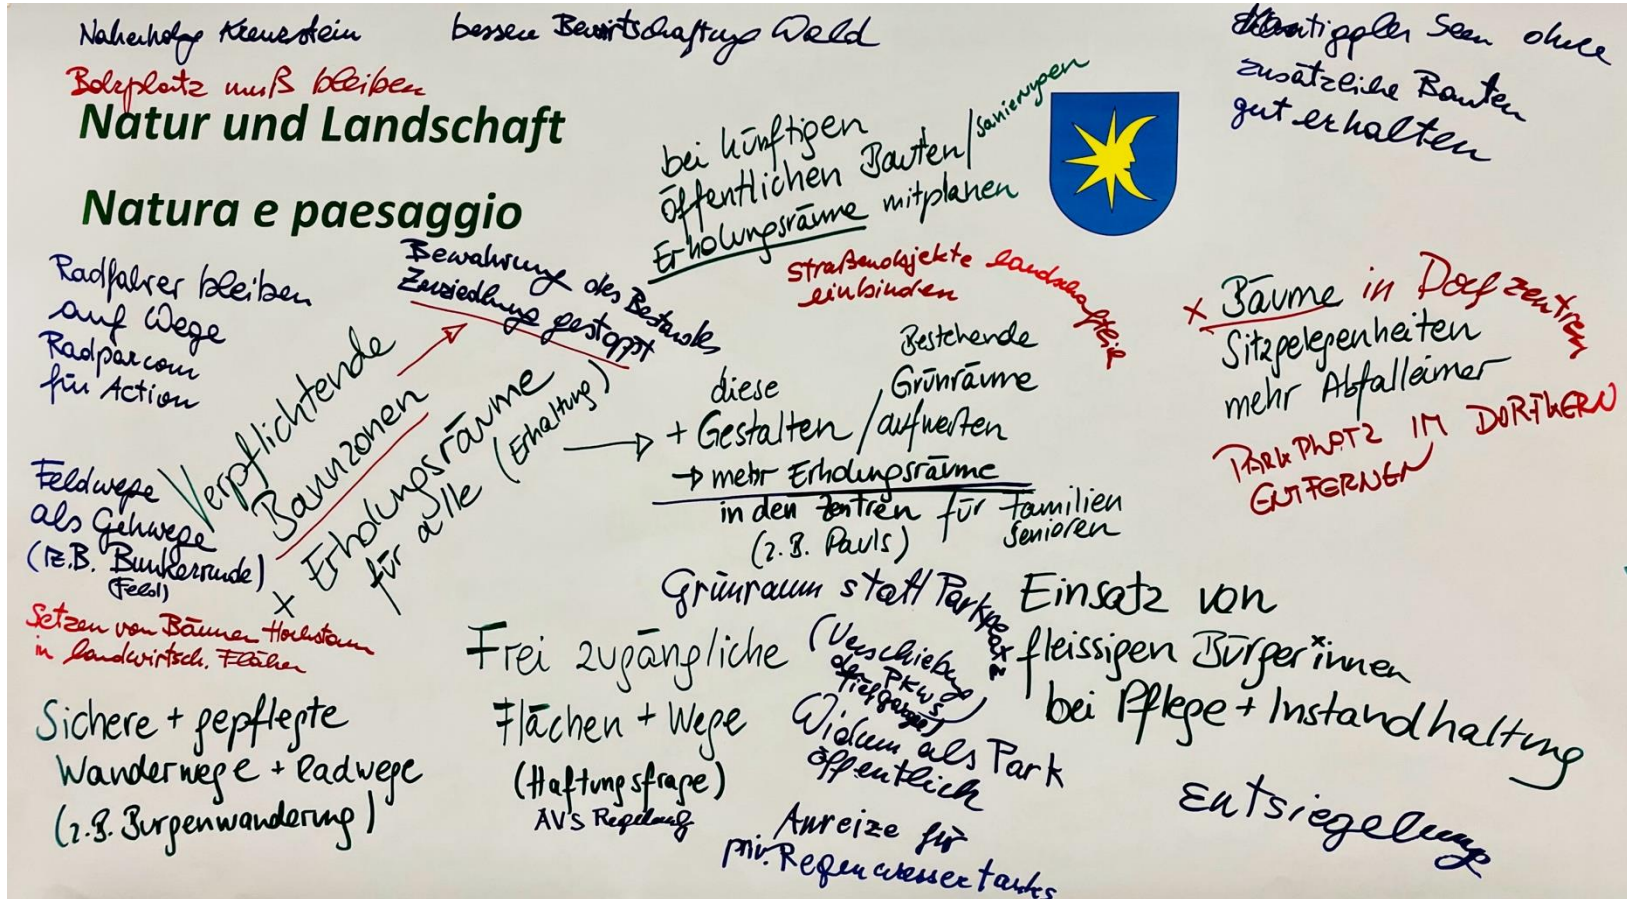 Naherholg Kreuzstein
bessere Bewirtschaftung Wald
Montiggler Seen ohne
zusätzliche Bauten
gut erhalten
Bolzplatz muß bleiben
Natur und Landschaft
Natura e paesaggio
bei künftigen
öffentlichen Bauten/Sanierungen
Erholungsräume mitplanen
Straßenobjekte landschaftlich
einbinden
Radfahrer bleiben
auf Wege
Radparcour
für Action
Bewahrung des Bestandes
Zersiedlung gestoppt
Verpflichtende
Bannzonen
x Erholungsräume
für alle (Erhaltung)
diese
+ Gestalten /
Bestehende
Grünräume
aufwerten
→ mehr Erholungsräume
in den Zentren für Familien
Senioren
(z.B. Pauls)
x Bäume in Dorfzentren
Sitzgelegenheiten
mehr Abfalleimer
PARKPLATZ IM DORFKERN
ENTFERNEN
Feldwege
als Gehwege
(z.B. Bunkerrunde)
(Feld)
Setzen von Bäumen Hochstam
in landwirtsch. Flächen
Sichere + gepflegte
Wanderwege + Radwege
(z.B. Burgenwanderung)
Frei zugängliche
Flächen + Wege
(Haftungsfrage)
AVS Regelung
Grünraum statt Parkplatz
(Verschiebung
der PKWs
Tiefgarage)
Widum als Park
öffentlich
Anreize für
priv. Regenwassertanks
Einsatz von
fleissigen Bürger*innen
bei Pflege + Instandhaltung
Entsiegelung